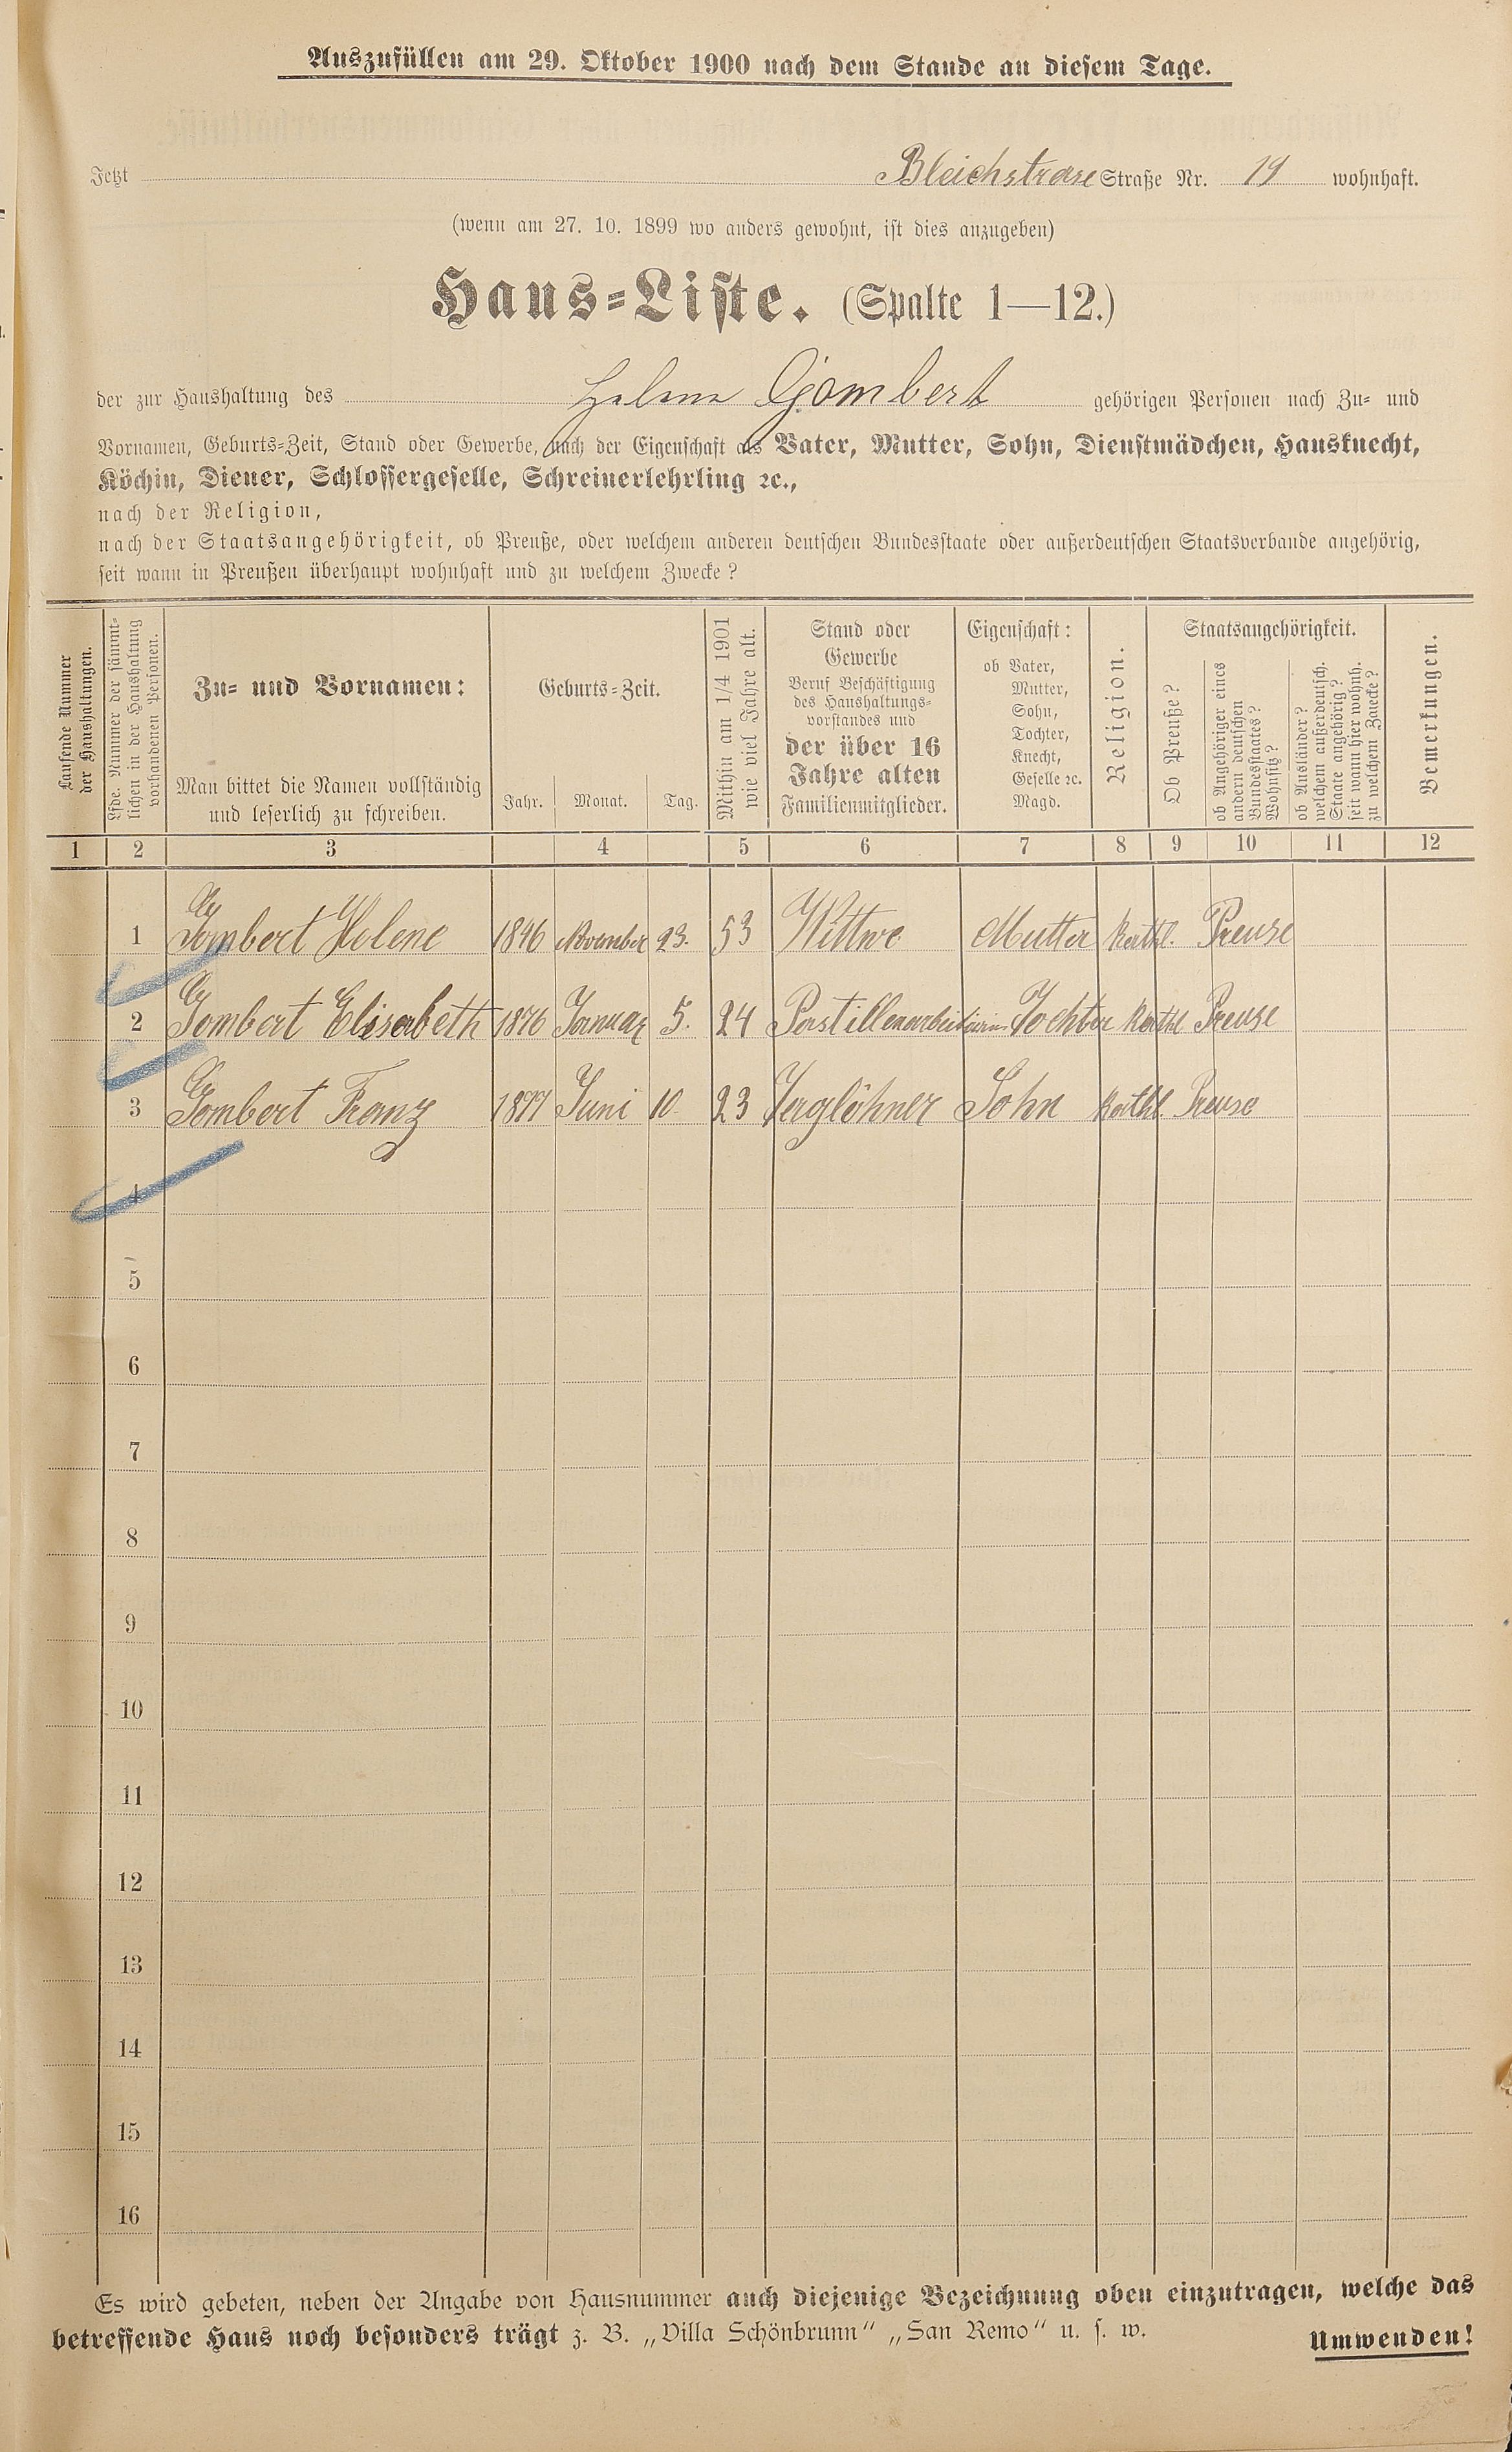 Auszufüllen am 29. Oktober 1900 nach dem Stande an diesem Tage.
Jetzt Bleichstrase Straße Nr. 19 wohnhaft.
(wenn am 27. 10. 1899 wo anders gewohnt, ist dies anzugeben)
Haus-Liste. (Spalte 1—12.)
der zur Haushaltung des Helene Gombert gehörigen Personen nach Zu- und
Vornamen, Geburts-Zeit, Stand oder Gewerbe, nach der Eigenschaft als Vater, Mutter, Sohn, Dienstmädchen, Hausknecht,
Köchin, Diener, Schlossergeselle, Schreinerlehrling ꝛc.,
nach der Religion,
nach der Staatsangehörigkeit, ob Preuße, oder welchem anderen deutschen Bundesstaate oder außerdeutschen Staatsverbande angehörig,
seit wann in Preußen überhaupt wohnhaft und zu welchem Zwecke?
Laufende Nummer
der Haushaltungen.
Lfde. Nummer der sämmt-
lichen in der Haushaltung
vorhandenen Personen.
Zu- und Vornamen:
Man bittet die Namen vollständig
und leserlich zu schreiben.
Geburts-Zeit.
Jahr. Monat. Tag.
Mithin am 1/4 1901
wie viel Jahre alt.
Stand oder
Gewerbe
Beruf Beschäftigung
des Haushaltungs-
vorstandes und
der über 16
Jahre alten
Familienmitglieder.
Eigenschaft:
ob Vater,
Mutter,
Sohn,
Tochter,
Knecht,
Geselle ꝛc.
Magd.
Religion.
Staatsangehörigkeit.
Ob Preuße?
ob Angehöriger eines
andern deutschen
Bundesstaates?
Wohnsitz?
ob Ausländer?
welchem außerdeutsch.
Staate angehörig?
seit wann hier wohnh.
zu welchem Zwecke?
Bemerkungen.
1 2 3 4 5 6 7 8 9 10 11 12
1 Gombert Helene 1846 November 23. 53 Wittwe Mutter Kathl. Preuse
2 Gombert Elisabeth 1876 Januar 5. 24 Pastillenarbeiterin Tochter Kathl Preuse
3 Gombert Franz 1877 Juni 10. 23 Taglöhner Sohn Kathl. Preuse
4
5
6
7
8
9
10
11
12
13
14
15
16
Es wird gebeten, neben der Angabe von Hausnummer auch diejenige Bezeichnung oben einzutragen, welche das
betreffende Haus noch besonders trägt z. B. „Villa Schönbrunn“ „San Remo“ u. s. w.
Umwenden!